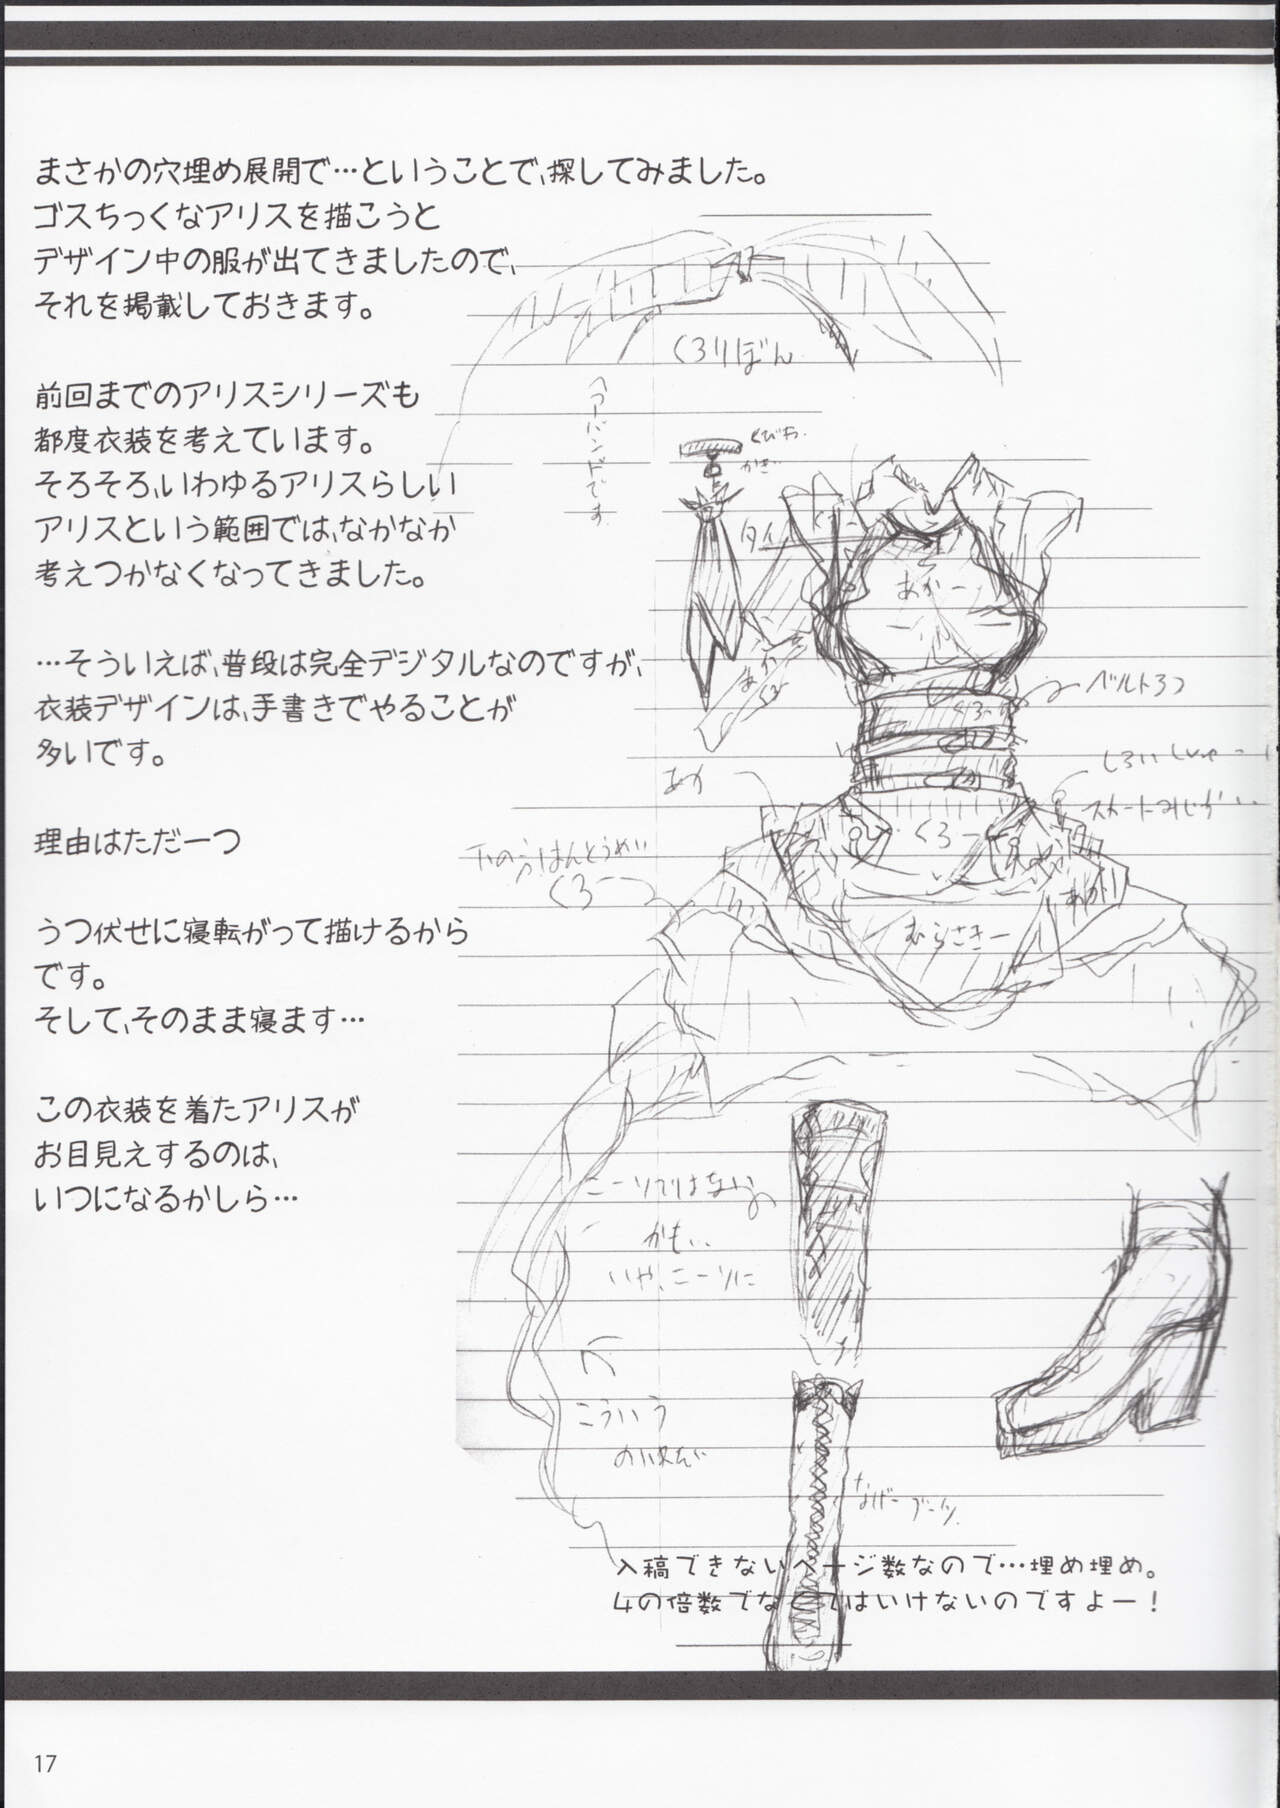 まさかの穴埋め展開で…ということで、探してみました。
ゴスちっくなアリスを描こうと
デザイン中の服が出てきましたので、
それを掲載しておきます。
前回までのアリスシリーズも
都度衣装を考えています。
そろそろ、いわゆるアリスらしい
アリスという範囲では、なかなか
考えつかなくなってきました。
…そういえば、普段は完全デジタルなのですが、
衣装デザインは、手書きでやることが
多いです。
理由はただ一つ
うつ伏せに寝転がって描けるから
です。
そして、そのまま寝ます…
この衣装を着たアリスが
お目見えするのは、
いつになるかしら…
くろりぼん
ヘアーバンドです
くびわ
かぎ
タイ
あかー
あか
くろ
ベルト3つ
くろー
あか
しろい
スカートみじかい
くろー
下のうはんとうめい
くろー
あか
むらさきー
ニーソではない
かも..
いや、ニーソに
こういう
ながーブーツ
入稿できないページ数なので…埋め埋め。
4の倍数でなくてはいけないのですよー!
17